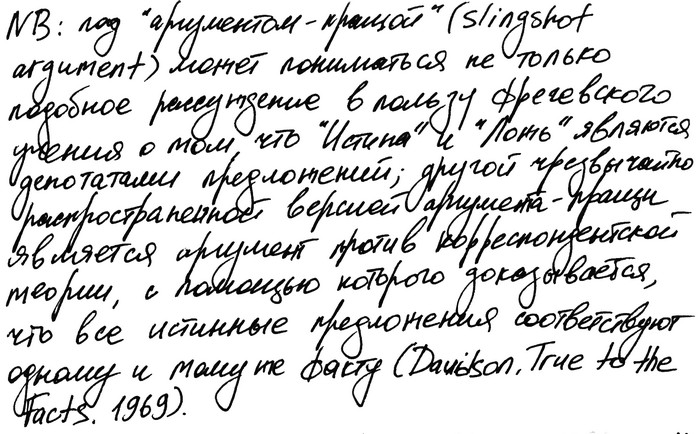 NB: под "аргументом-пращой" (slingshot
argument) может пониматься не только
подобное рассуждение в пользу фрегевского
учения о том, что "Истина" и "Ложь" являются
денотатами предложений; другой чрезвычайно
распространенной версией аргумента-пращи
является аргумент против корреспондентской
теории, с помощью которого доказывается,
что все истинные предложения соответствуют
одному и тому же факту (Davidson. True to the
Facts. 1969).